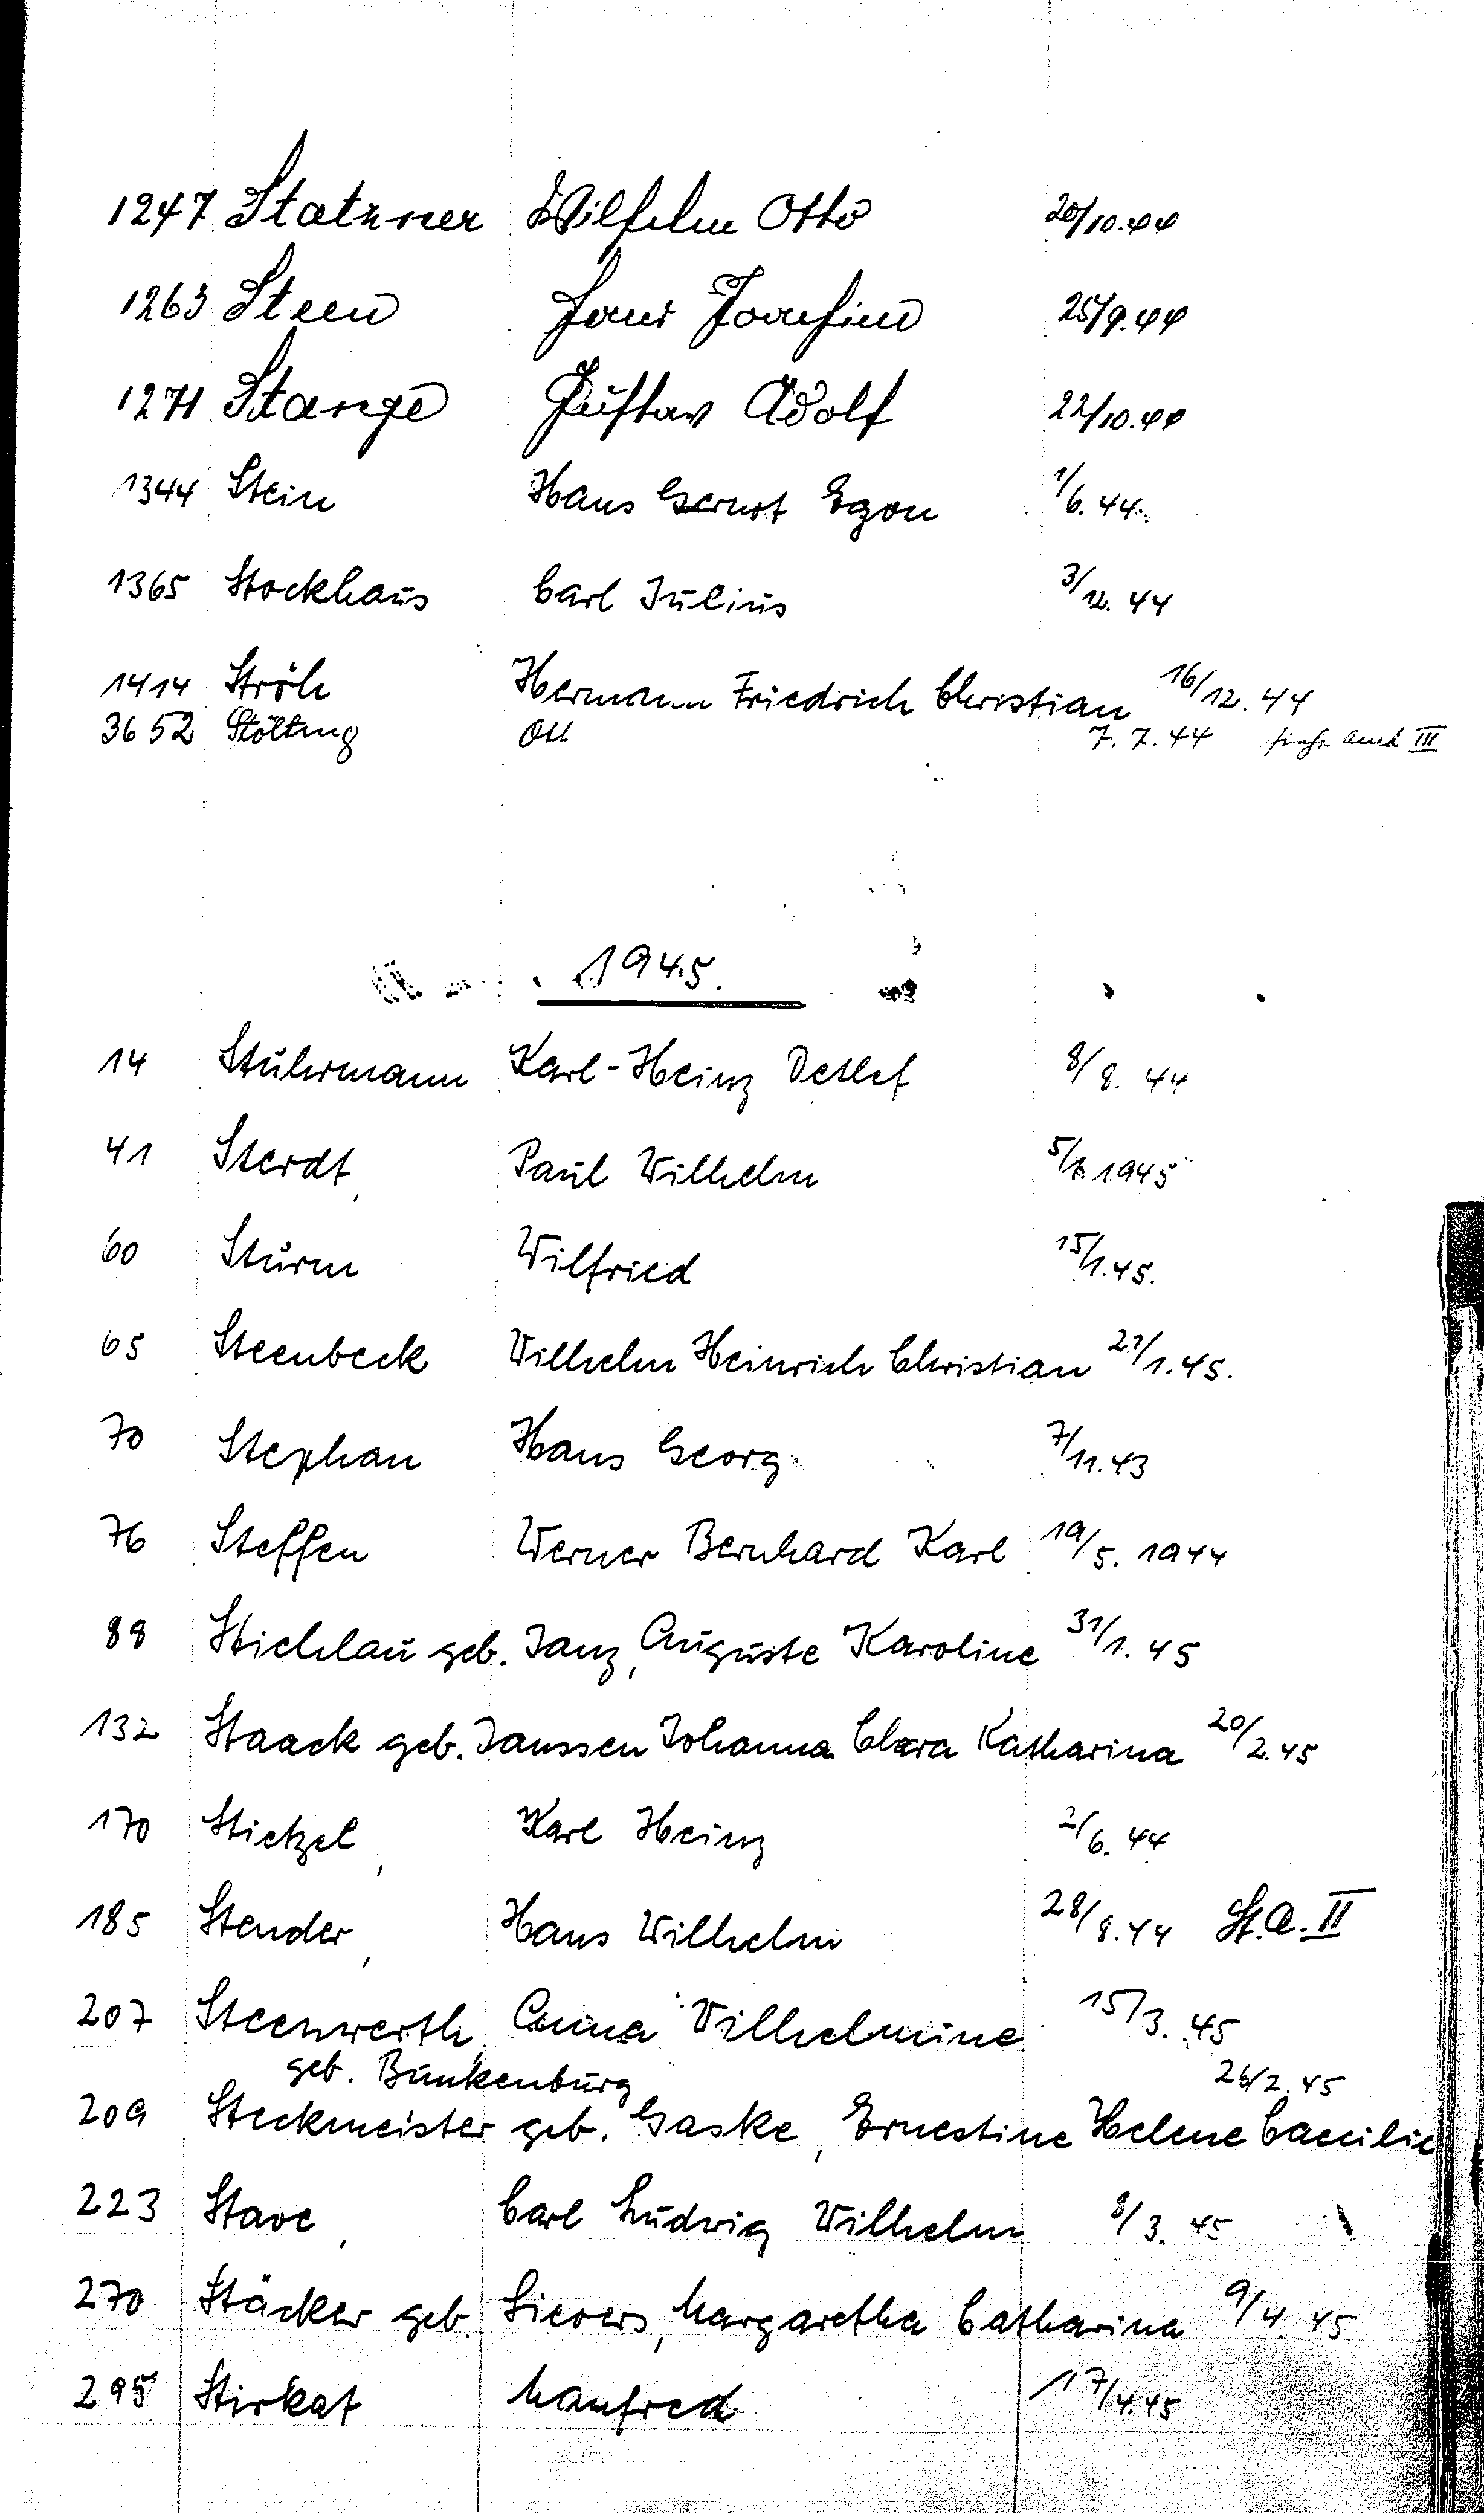 1247 Statzner Wilhelm Otto 20/10.44
1263 Steen Hans Joachim 25/9.44
1271 Stange Gustav Adolf 22/10.44
1344 Stein Hans Gernot Egon 1/6.44.
1365 Stockhaus Carl Julius 3/12.44
1414 Ströh Hermann Friedrich Christian 16/12.44
3652 Stölting Ott 7.7.44 siehe auch III
1945.
14 Stührmann Karl-Heinz Detlef 8/8.44
41 Sterdt, Paul Wilhelm 5/1.1945
60 Sturm Wilfried 15/1.45.
65 Steenbeck Wilhelm Heinrich Christian 1.45.
70 Stephan Hans Georg 7/11.43
76 Steffen Werner Bernhard Karl 19/5.1944
88 Stichlau geb. Janz, Auguste Karoline 31/1.45
132 Staack geb. Janssen Johanna Clara Katharina 20/2.45
170 Stietzel, Karl Heinz 2/6.44
185 Stender, Hans Wilhelm 28/8.44 St.A. II
207 Steenwerth, Anna Wilhelmine 15/3.45
geb. Bunkenburg 26/2.45
209 Steckmeister geb. Gaske, Ernestine Helene Caecilie
223 Stave, Carl Ludwig Wilhelm 8/3.45
270 Stäcker geb. Sievers, Margaretha Catharina 9/4.45
295 Stirkat Manfred 17/4.45